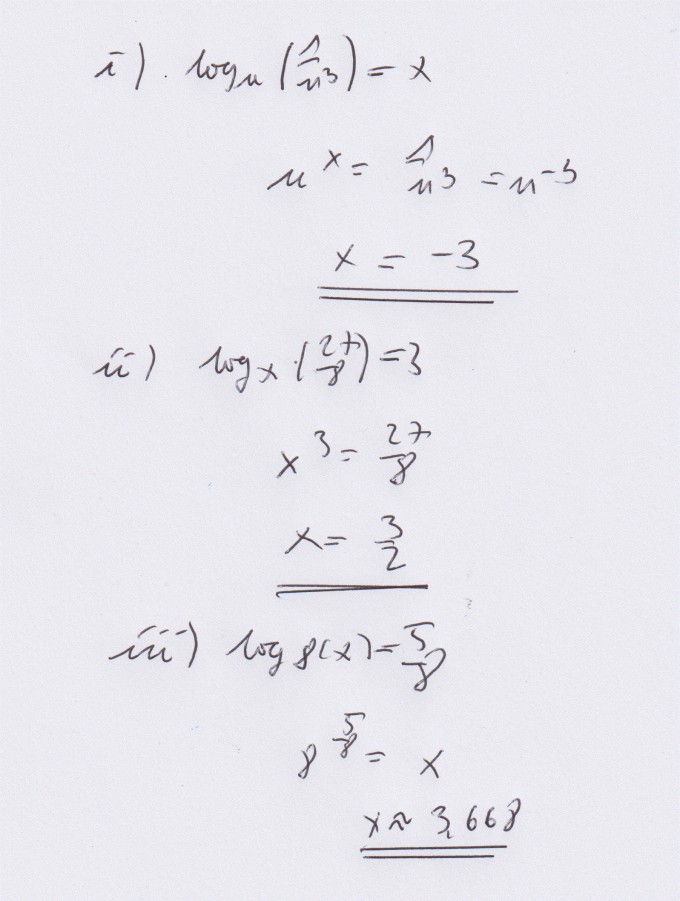 i) log_u (1/u³) = x
u^x = 1/u³ = u^-3
x = -3
ii) log_x (27/8) = 3
x³ = 27/8
x = 3/2
iii) log 8(x) = 5/8
8^(5/8) = x
x ≈ 3,668